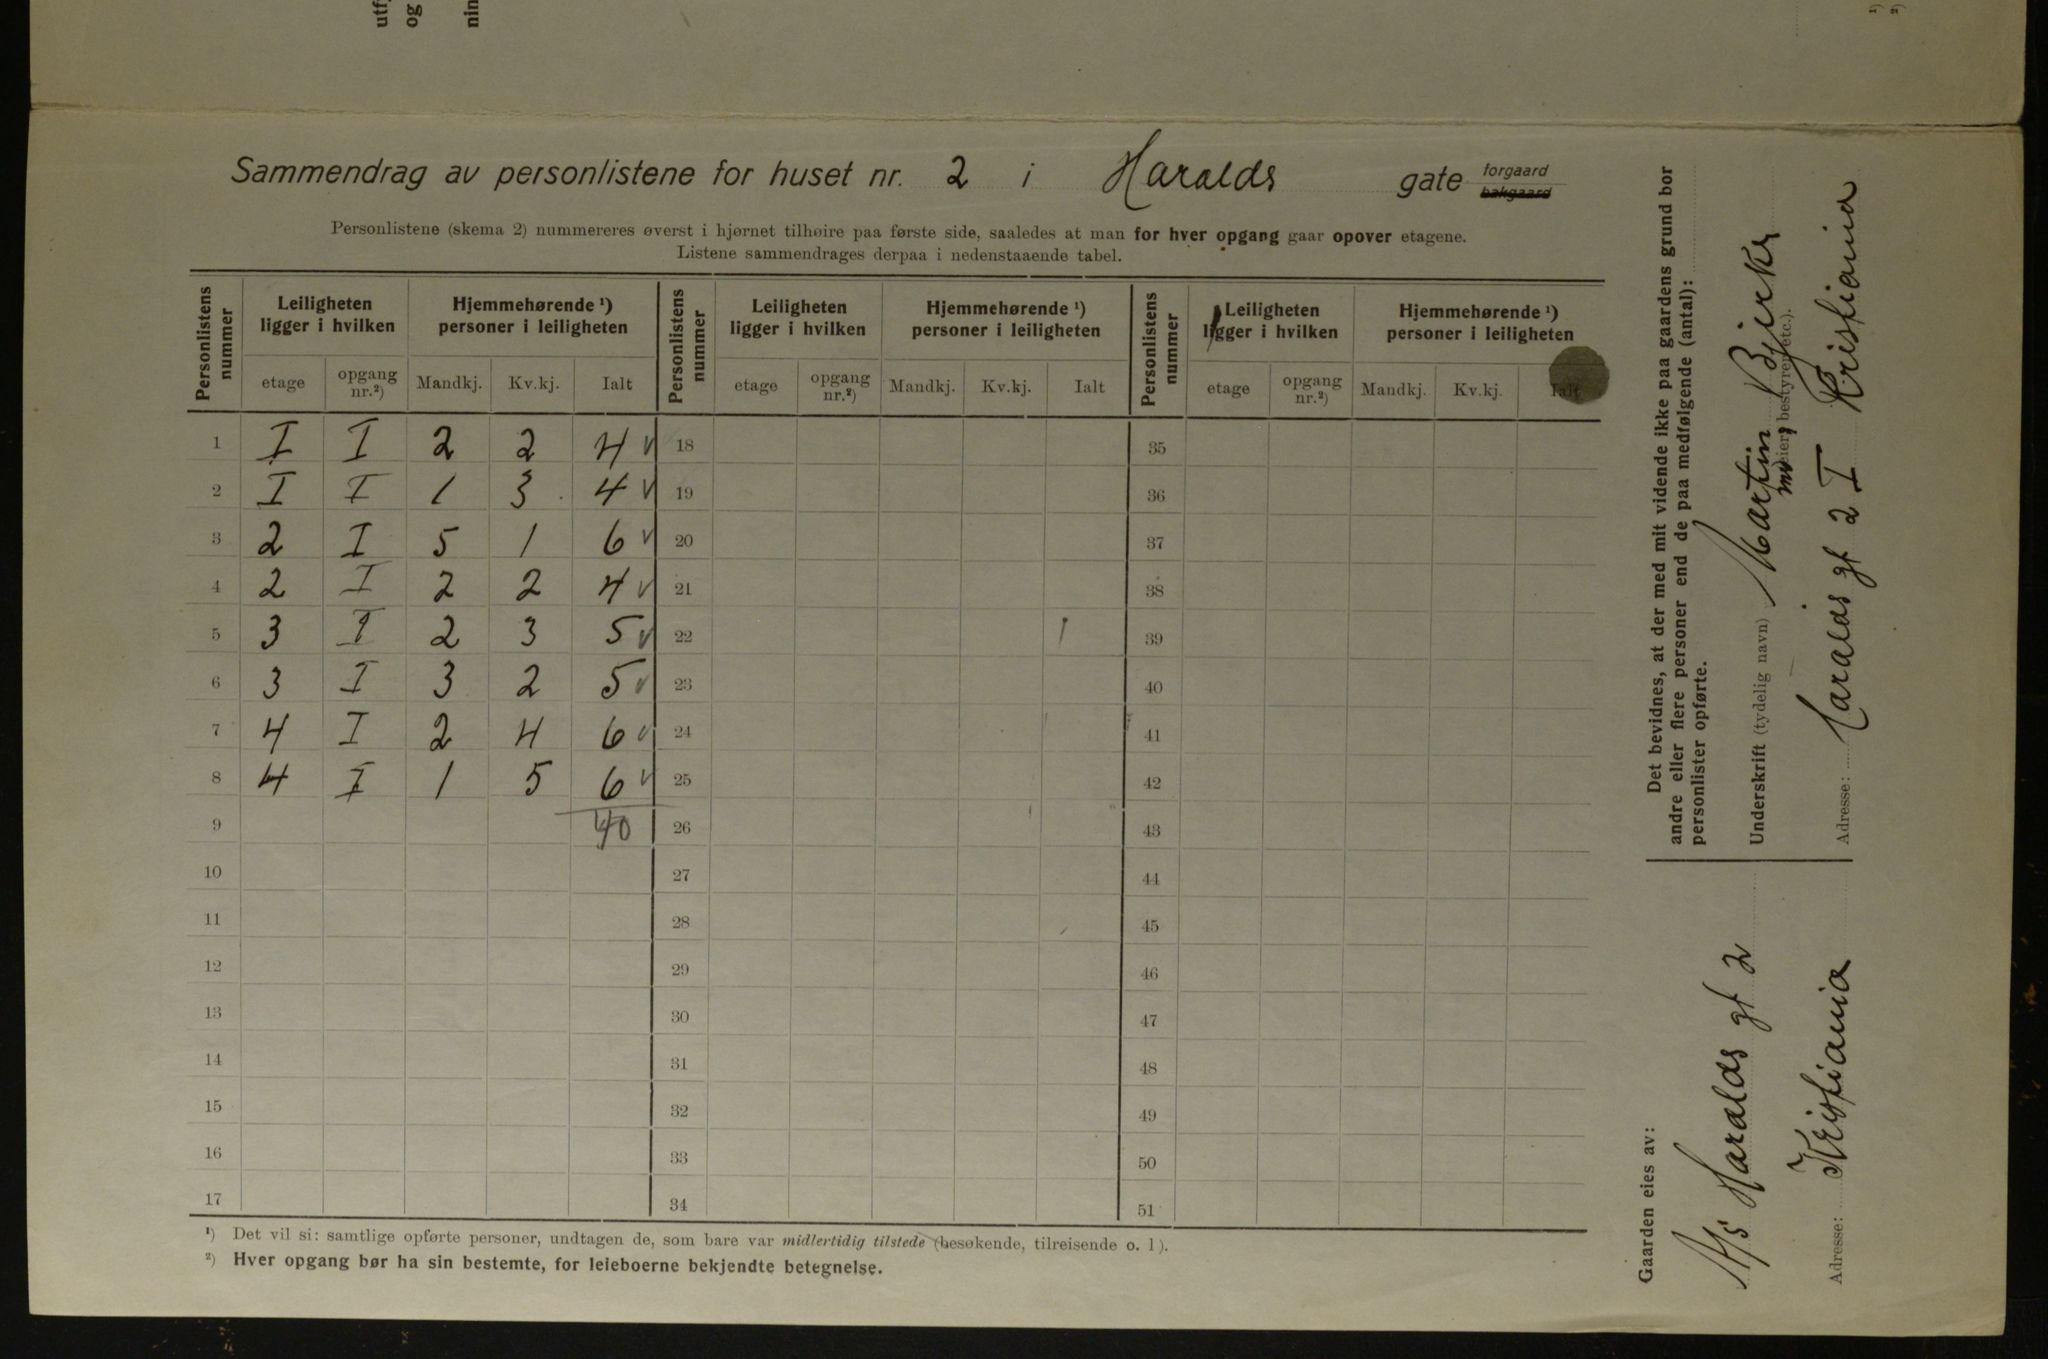 Sammendrag av personlistene for huset nr. 2 i Haralds gate forgaard bakgaard
Personlistene (skema 2) nummereres øverst i hjørnet tilhøire paa første side, saaledes at man for hver opgang gaar opover etagene.
Listene sammendrages derpaa i nedenstaaende tabel.
Personlistens nummer Leiligheten ligger i hvilken Hjemmehørende ¹) personer i leiligheten Personlistens nummer Leiligheten ligger i hvilken Hjemmehørende ¹) personer i leiligheten Personlistens nummer Leiligheten ligger i hvilken Hjemmehørende ¹) personer i leiligheten
etage opgang nr.²) Mandkj. Kv.kj. Ialt etage opgang nr.²) Mandkj. Kv.kj. Ialt etage opgang nr.²) Mandkj. Kv.kj. Ialt
1 I I 2 2 4 v 18 35
2 I I 1 3 4 v 19 36
3 2 I 5 1 6 v 20 37
4 2 I 2 2 4 v 21 38
5 3 I 2 3 5 v 22 39
6 3 I 3 2 5 v 23 40
7 4 I 2 4 6 v 24 41
8 4 I 1 5 6 v 25 42
9 40 26 43
10 27 44
11 28 45
12 29 46
13 30 47
14 31 48
15 32 49
16 33 50
17 34 51
¹) Det vil si: samtlige opførte personer, undtagen de, som bare var midlertidig tilstede (besøkende, tilreisende o. l).
²) Hver opgang bør ha sin bestemte, for leieboerne bekjendte betegnelse.
Det bevidnes, at der med mit vidende ikke paa gaardens grund bor
andre eller flere personer end de paa medfølgende (antal):
personlister opførte.
Underskrift (tydelig navn) Martin Bjerke
(eier, bestyrer etc.).
Adresse: Haralds gt 2 I Kristiania
Gaarden eies av:
A/S Haralds gt 2
Adresse: Kristiania